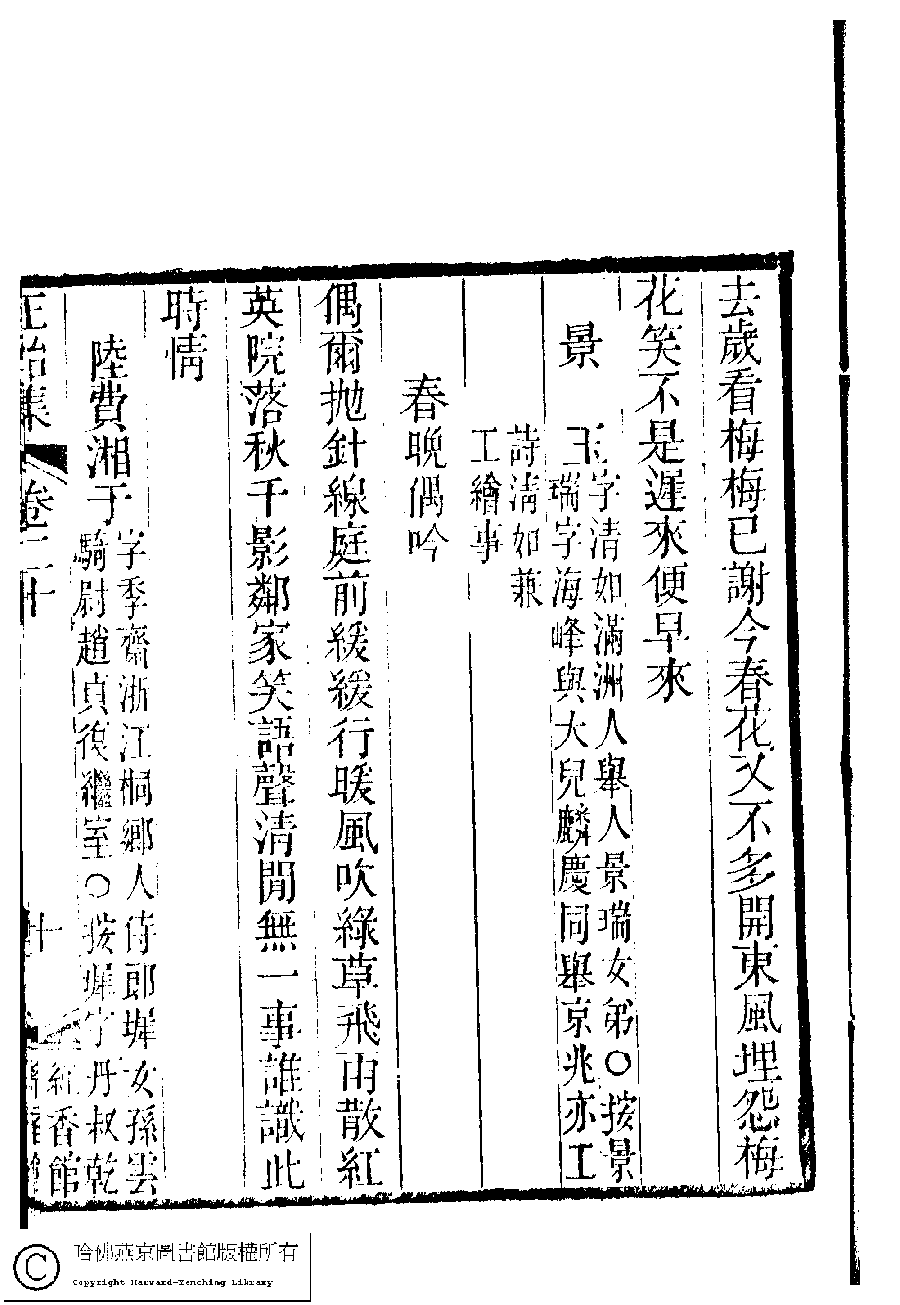 去歲看梅梅已謝今春花又不多開東風埋怨梅
花笑不是遲來便早來
景玉
字清如滿洲人舉人景瑞女弟○按景
瑞字海峰與大兒麟慶同舉京兆亦工
詩清如兼
工繪事
春晚偶吟
偶爾拋針線庭前緩緩行暖風吹綠草飛雨散紅
英院落秋千影鄰家笑語聲清閒無一事誰識此
時情
陸費湘于
字季齋浙江桐鄉人侍郎墀女孫雲
騎尉趙貞復繼室○按墀字丹叔乾
正始集
卷二十
紅香館
哈佛燕京圖書館版權所有
Copyright Harvard-Yenching Library